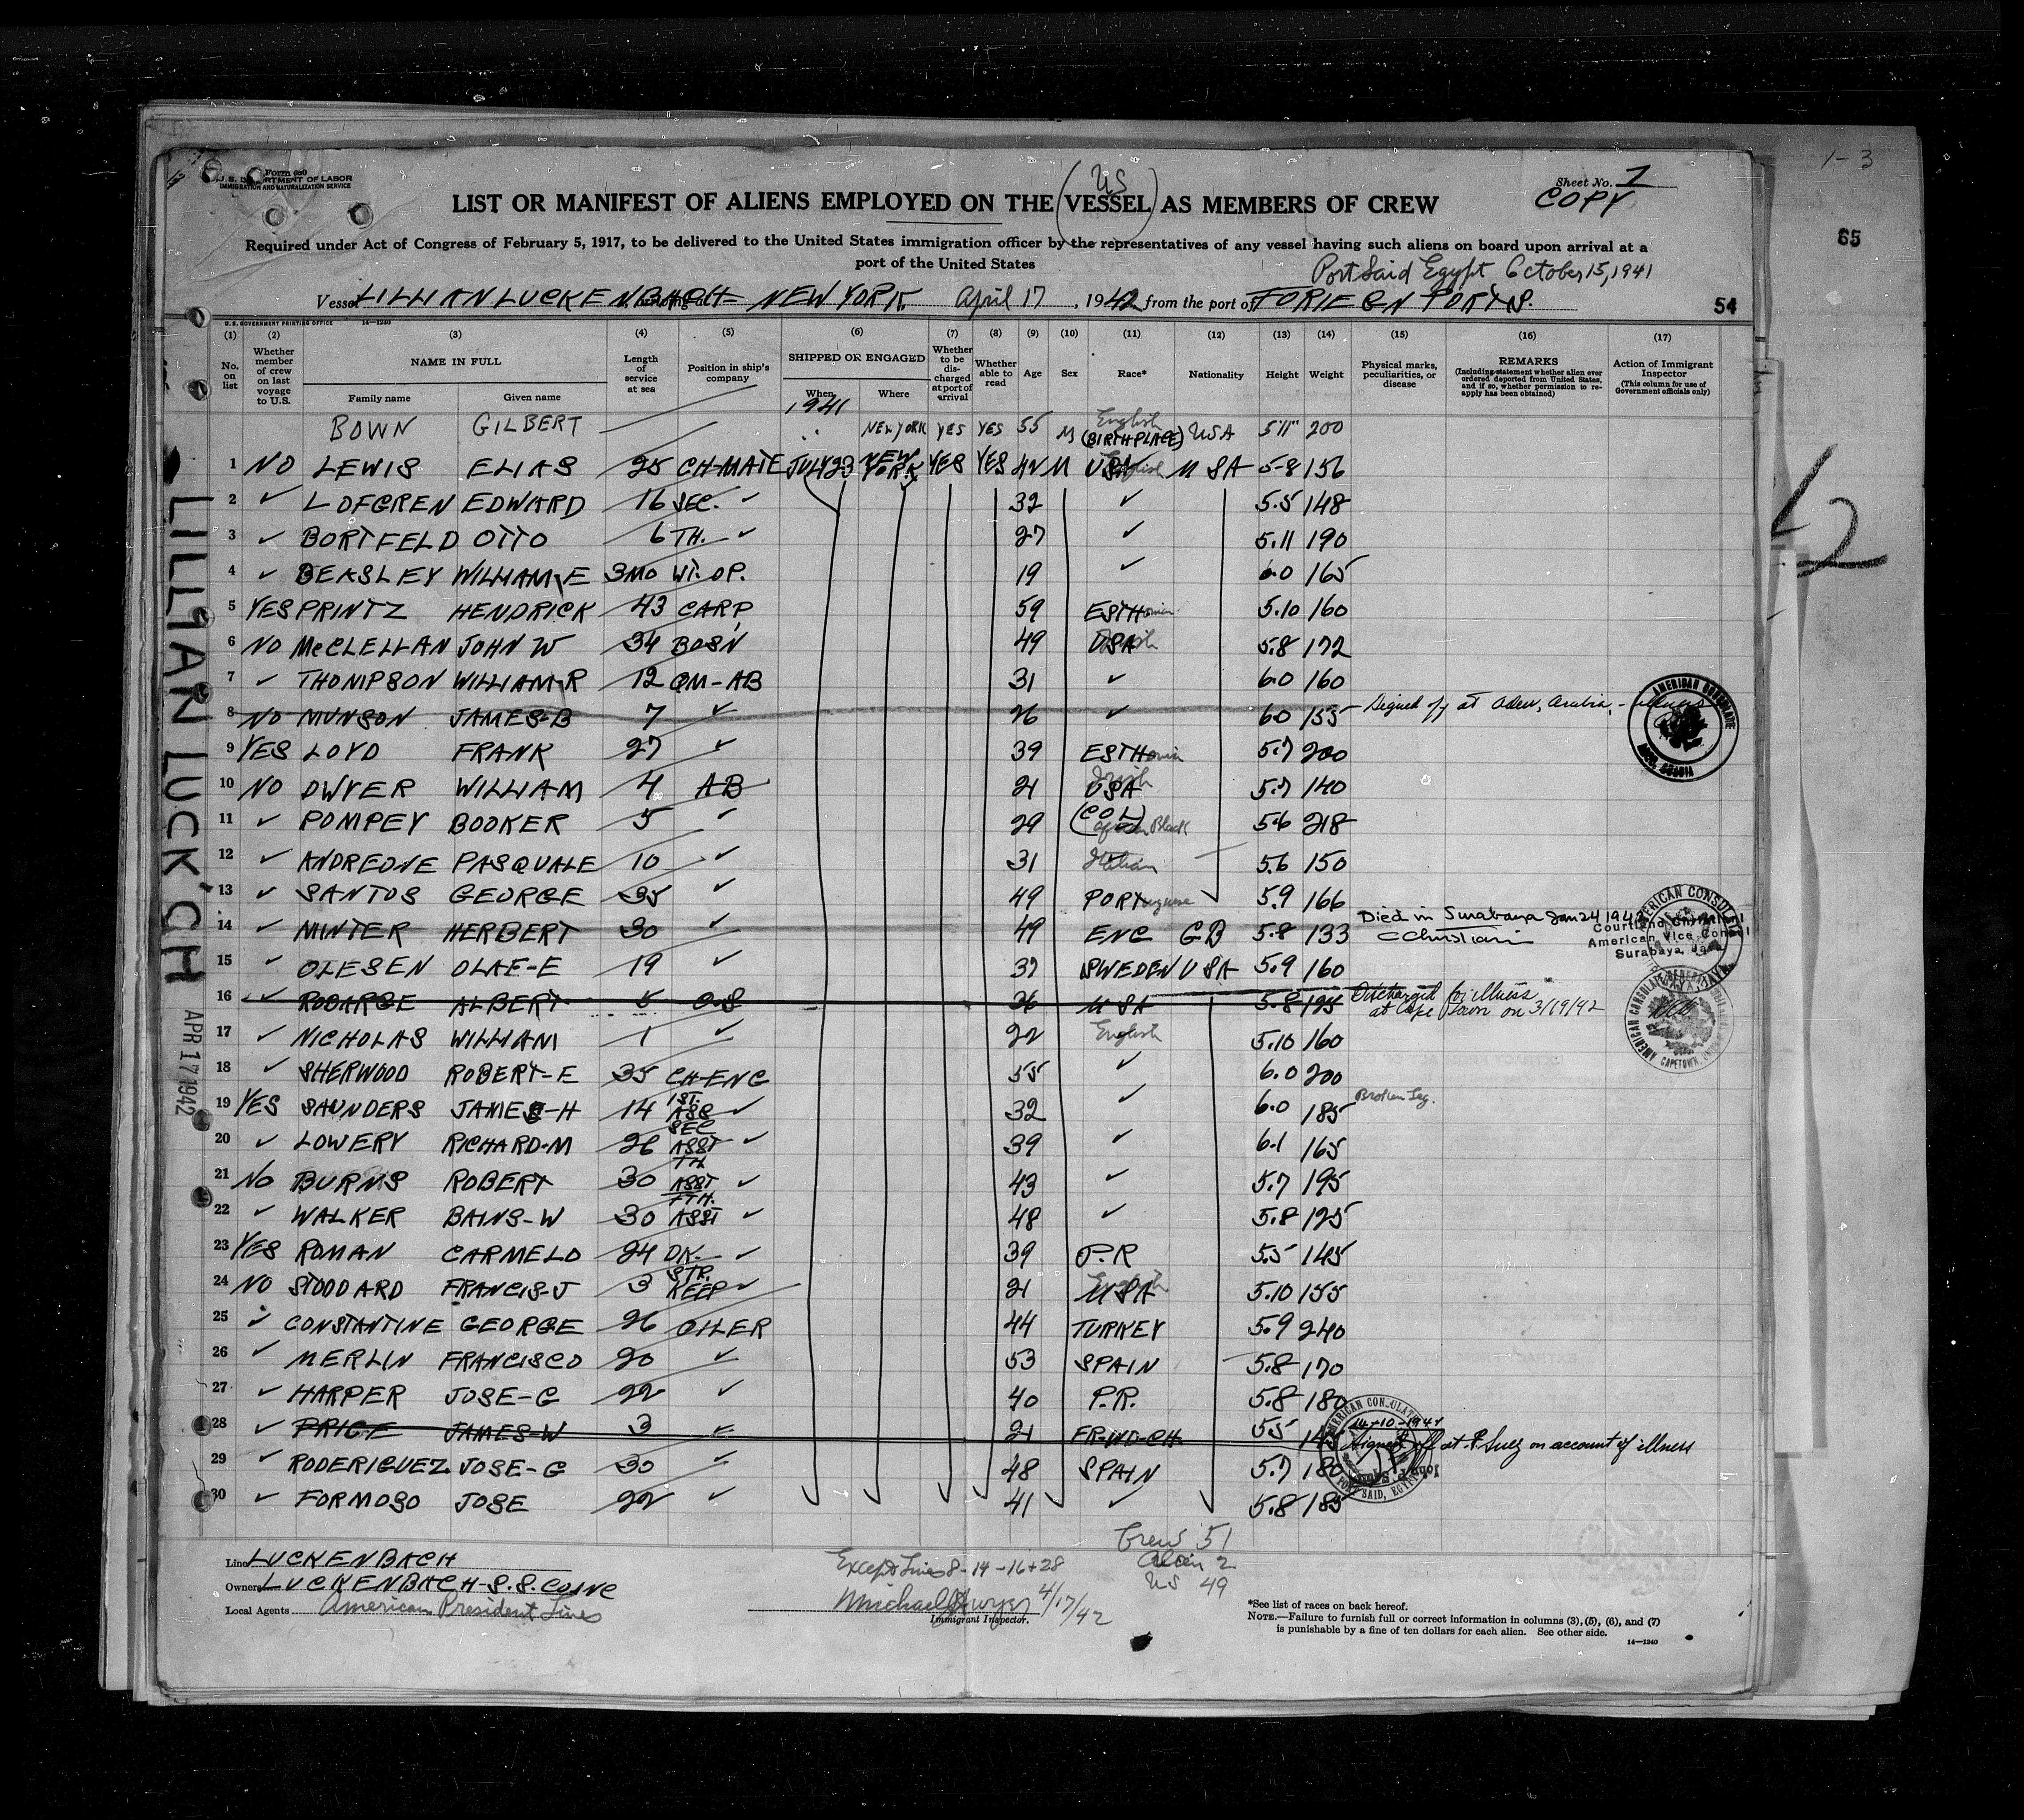 1-3
65
Form 680
U. S. DEPARTMENT OF LABOR
IMMIGRATION AND NATURALIZATION SERVICE
Sheet No. 1
COPY
(US)
LIST OR MANIFEST OF ALIENS EMPLOYED ON THE VESSEL AS MEMBERS OF CREW
Required under Act of Congress of February 5, 1917, to be delivered to the United States immigration officer by the representatives of any vessel having such aliens on board upon arrival at a
port of the United States
Port Said Egypt October 15, 1941
Vessel LILLIAN LUCKENBACH NEW YORK April 17, 1942 from the port of FORIEGN PORTS.
54
U. S. GOVERNMENT PRINTING OFFICE 14—1240
(1) (2) (3) (4) (5) (6) (7) (8) (9) (10) (11) (12) (13) (14) (15) (16) (17)
No. on list
Whether member of crew on last voyage to U.S.
NAME IN FULL
Family name Given name
Length of service at sea
Position in ship's company
SHIPPED OR ENGAGED
When Where
Whether to be discharged at port of arrival
Whether able to read
Age
Sex
Race*
Nationality
Height
Weight
Physical marks, peculiarities, or disease
REMARKS
(Including statement whether alien ever ordered deported from United States, and if so, whether permission to reapply has been obtained)
Action of Immigrant Inspector
(This column for use of Government officials only)
1941
BOWN GILBERT NEW YORK YES YES 55 M English (BIRTHPLACE) USA 5'11" 200
1 NO LEWIS ELIAS 25 CH-MATE JULY 23 NEW YORK YES YES 42 M USA English USA 5-8 156
2 ✓ LOFGREN EDWARD 16 SEC. ✓ 32 ✓ 5.5 148
3 ✓ BORTFELD OTTO 6 TH. ✓ 27 ✓ 5.11 190
4 ✓ BEASLEY WILLIAM E 3MO WT. OP. 19 ✓ 6.0 165
5 YES PRINTZ HENDRICK 43 CARP 59 ESTHonian 5.10 160
6 NO McCLELLAN JOHN W 34 BOSN 49 USA 5.8 172
7 ✓ THOMPSON WILLIAM R 12 QM-AB 31 ✓ 6.0 160
8 NO MUNSON JAMES-B 7 ✓ 26 ✓ 6.0 155 Signed off at Aden, Arabia, - illness
AMERICAN CONSULATE
ADEN, ARABIA
9 YES LOYD FRANK 27 ✓ 39 ESTHonian 5.7 200
10 NO DWYER WILLIAM 4 AB 21 USA Irish 5.7 140
11 ✓ POMPEY BOOKER 5 ✓ 29 (COL) African Black 5.6 218
12 ✓ ANDREONE PASQUALE 10 ✓ 31 Italian 5.6 150
13 ✓ SANTOS GEORGE 35 ✓ 49 PORTuguese 5.9 166
14 ✓ MINTER HERBERT 30 ✓ 49 ENG GB 5.8 133 Died in Surabaya Jan 24 1942
CChristiani
Courtland Christiani
American Vice Consul
Surabaya, Java
AMERICAN CONSULATE
15 ✓ OLESEN OLAF-E 19 ✓ 37 SWEDEN USA 5.9 160
16 ✓ ROBARGE ALBERT 5 O.S 26 USA 5.8 125 Discharged for illness
at Cape Town on 3/19/92
AMERICAN CONSULATE GENERAL
CAPETOWN
17 ✓ NICHOLAS WILLIAM 1 ✓ 22 English 5.10 160
18 ✓ SHERWOOD ROBERT-E 35 CH-ENG 55 ✓ 6.0 200
19 YES SAUNDERS JAMES-H 14 1ST. ASS ✓ 32 ✓ 6.0 185 Broken Leg.
20 ✓ LOWERY RICHARD-M 26 SEC ASST ✓ 39 ✓ 6.1 165
21 NO BURNS ROBERT 30 TH ASST ✓ 43 ✓ 5.7 195
22 ✓ WALKER BAINS-W 30 FTH. ASST ✓ 48 ✓ 5.8 125
23 YES ROMAN CARMELO 24 DK. ✓ 39 P.R 5.5 145
24 NO STODDARD FRANCIS-J 3 STR. KEEP ✓ 21 USA English 5.10 155
25 ✓ CONSTANTINE GEORGE 26 OILER 44 TURKEY 5.9 240
26 ✓ MERLIN FRANCISCO 20 ✓ 53 SPAIN 5.8 170
27 ✓ HARPER JOSE-G 22 ✓ 40 P.R. 5.8 180
28 ✓ PRICE JAMES-W 3 21 5.5 145 14-10-1941 Signed off at P. Suez on account of illness
AMERICAN CONSULATE
PORT SAID, EGYPT
29 ✓ RODERIGUEZ JOSE-G 30 ✓ 48 SPAIN 5.7 180
30 ✓ FORMOSO JOSE 22 ✓ 41 ✓ 5.8 185
LILLIAN LUCK'CH
APR 17 1942
Line LUCKENBACH
Owners LUCKENBACH-S.S. CO INC
Local Agents American President Lines
Except Lines 8-14-16+28
Michael Dwyer 4/17/42
Immigrant Inspector.
Crew 51
Alien 2
US 49
*See list of races on back hereof.
NOTE.—Failure to furnish full or correct information in columns (3), (5), (6), and (7)
is punishable by a fine of ten dollars for each alien. See other side.
14—1240